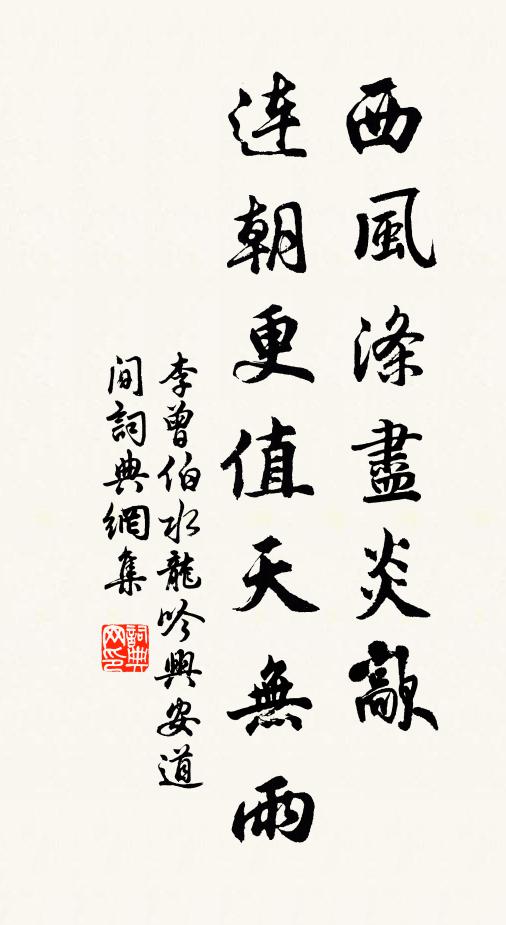 西風滌盡炎歊
連朝更值天無雨
李曾伯水龍吟興安道
間詞典網集
詞典
网印